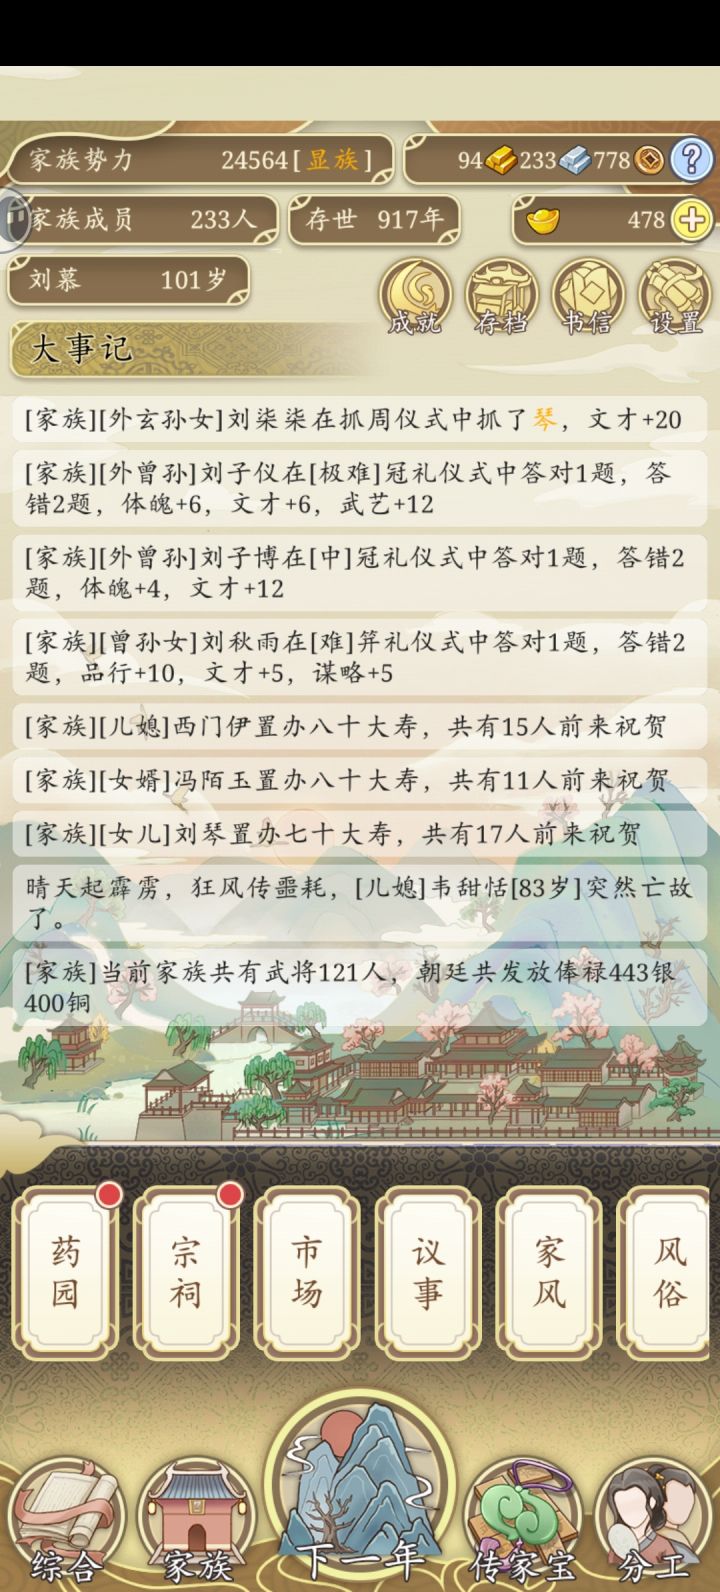 家族势力 24564[显族] 94 233 778 ?
家族成员 233人 存世 917年 478
刘慕 101岁
成就 存档 书信 设置
大事记
[家族][外玄孙女]刘柒柒在抓周仪式中抓了琴，文才+20
[家族][外曾孙]刘子仪在[极难]冠礼仪式中答对1题，答
错2题，体魄+6，文才+6，武艺+12
[家族][外曾孙]刘子博在[中]冠礼仪式中答对1题，答错2
题，体魄+4，文才+12
[家族][曾孙女]刘秋雨在[难]笄礼仪式中答对1题，答错2
题，品行+10，文才+5，谋略+5
[家族][儿媳]西门伊置办八十大寿，共有15人前来祝贺
[家族][女婿]冯陌玉置办八十大寿，共有11人前来祝贺
[家族][女儿]刘琴置办七十大寿，共有17人前来祝贺
晴天起霹雳，狂风传噩耗，[儿媳]韦甜恬[83岁]突然亡故
了。
[家族]当前家族共有武将121人，朝廷共发放俸禄443银
400铜
药园 宗祠 市场 议事 家风 风俗
综合 家族 下一年 传家宝 分工